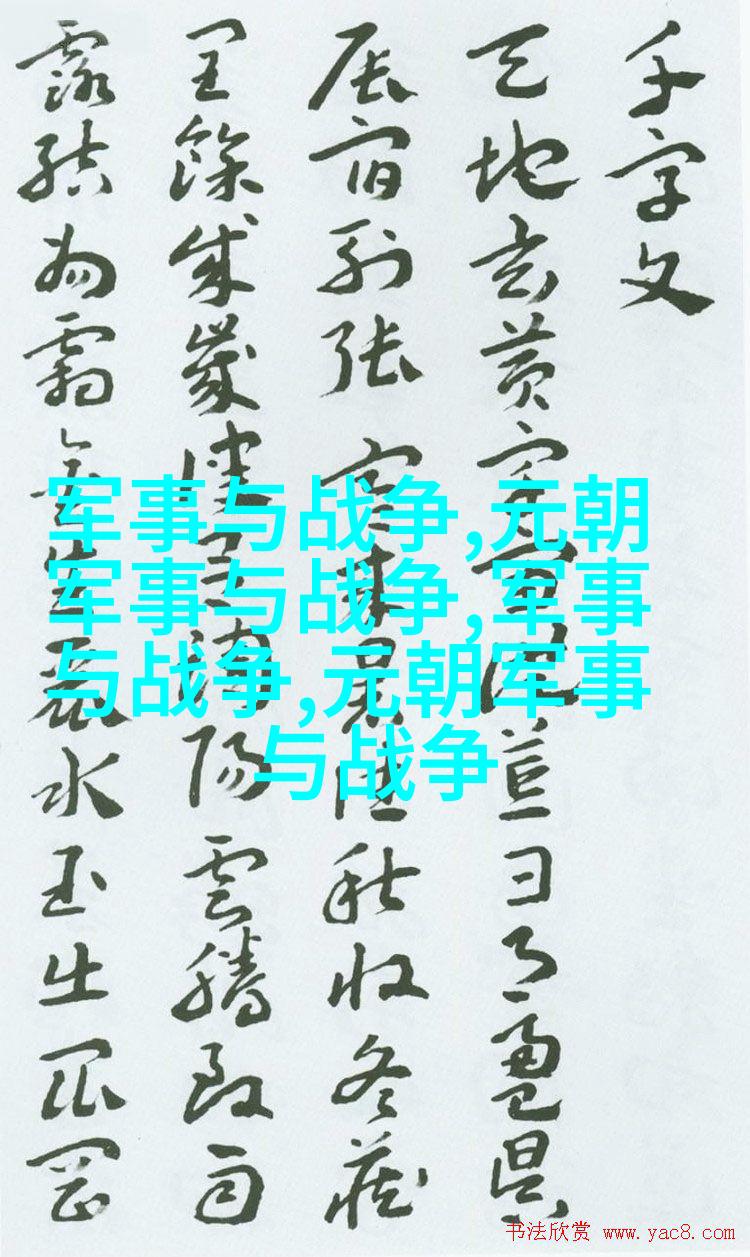 千字文
天地玄黃宇宙洪荒日月盈昃
辰宿列張寒來暑往秋收冬藏
閏餘成歲律呂調陽雲騰致雨
露結為霜金生麗水玉出崑岡
军事与战争,元朝
军事与战争,军事
与战争,元朝军事
与战争
书法欣赏 www.yac8.com